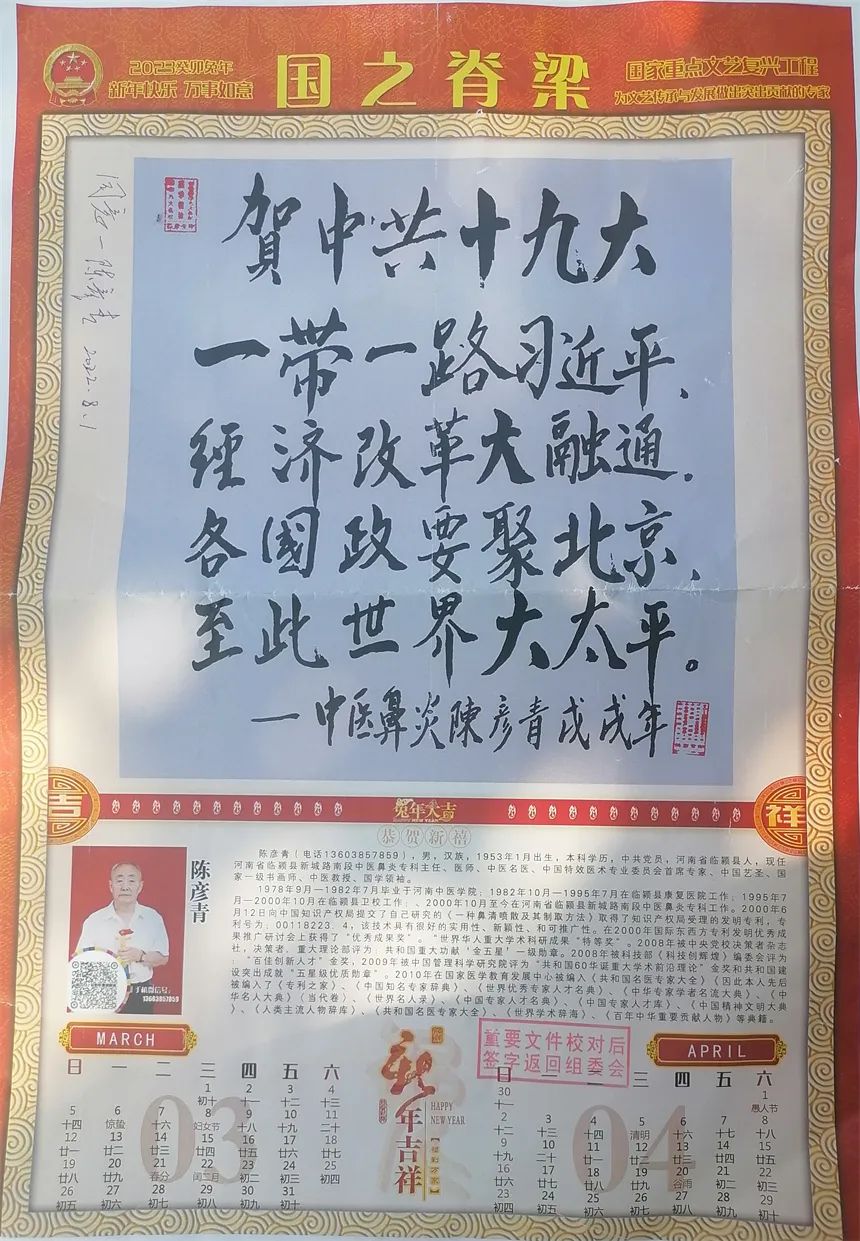 2023癸卯兔年
新年快乐 万事如意
国之脊梁
国家重点文艺复兴工程
为文艺传承与发展做出突出贡献的专家
同意一陈彦青 2022.8.1
賀中共十九大
一带一路习近平、
經济改革大融通、
各國政要聚北京、
至此世界大太平。
一中医鼻炎陳彦青戊戌年
吉
兔年大吉
HAPPY NEW YEAR
祥
恭贺新禧
陈彦青
手机微信号：
13603857859
陈彦青（电话13603857859），男，汉族，1953年1月出生，本科学历，中共党员，河南省临颍县人，现任
河南省临颍县新城路南段中医鼻炎专科主任、医师、中医名医、中国特效医术专业委员会首席专家、中国艺圣、国
家一级书画师、中医教授、国学领袖。
1978年9月—1982年7月毕业于河南中医学院；1982年10月—1995年7月在临颍县康复医院工作；1995年7
月—2000年10月在临颍县卫校工作；、2000年10月至今在河南省临颍县新城路南段中医鼻炎专科工作。2000年6
月12日向中国知识产权局提交了自己研究的《一种鼻清喷散及其制取方法》取得了知识产权局受理的发明专利，专
利号为：00118223．4，该技术具有很好的实用性、新颖性、和可推广性。在2000年国际东西方专利发明优秀成
果推广研讨会上获得了“优秀成果奖”，“世界华人重大学术科研成果“特等奖”。2008年被中央党校决策者杂志
社，决策者、重大理论部评为：共和国重大功献‘金五星’一级勋章。2008年被科技部《科技创辉煌》编委会评为
：“百佳创新人才”金奖，2009年被中国管理科学研究院评为“共和国60华诞重大学术前沿理论”金奖和共和国建
设突出成就“五星级优质勋章”。2010年在国家医学教育发展中心被编入《共和国名医专家大全》《因此本人先后
被编入了《专利之家》、《中国知名专家辞典》、《世界优秀专家人才名典》、《中华专家学者名流大典》、《中
华名人大典》（当代卷）、《世界名人录》、《中国专家人才名典》、《中国专家人才库》、《中国精神文明大典
》、《人类主流人物辞库》、《共和国名医专家大全》、《世界学术辞海》、《百年中华重要贡献人物》等典籍。
重要文件校对后
签字返回组委会
MARCH
日 一 二 三 四 五 六
1 2 3 4
初十 十一 十二 十三
5 6 7 8 9 10 11
十四 惊蛰 十六 妇女节 十八 十九 二十
12 13 14 15 16 17 18
廿一 廿二 廿三 廿四 廿五 廿六 廿七
19 20 21 22 23 24 25
廿八 廿九 春分 闰二月 初二 初三 初四
26 27 28 29 30 31
初五 初六 初七 初八 初九 初十
03
新年吉祥
HAPPY
NEW YEAR
APRIL
日 二 三 四 五 六
30 1
十一 愚人节
2 3 4 5 6 7 8
十二 十三 十四 清明 十六 十七 十八
9 10 11 12 13 14 15
十九 二十 廿一 廿二 廿三 廿四 廿五
16 17 18 19 20 21 22
廿六 廿七 廿八 廿九 谷雨 初二 初三
23 24 25 26 27 28 29
初四 初五 初六 初七 初八 初九 初十
04